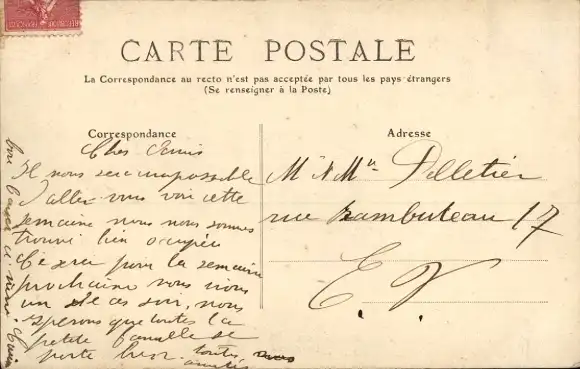 CARTE POSTALE
La Correspondance au recto n'est pas acceptée par tous les pays étrangers
(Se renseigner à la Poste)
Correspondance
Adresse
Chers Amis
Il nous sera impossible
d'aller vous voir cette
semaine nous nous sommes
trouvé bien occupés
Ce sera pour la semaine
prochaine nous nous
un de ces soir, nous
esperons que toutes la
petite famille se
porte bien. toutes nos
amitiés
Mr & Mme Pelletier
rue Rambuteau 17
E. V.